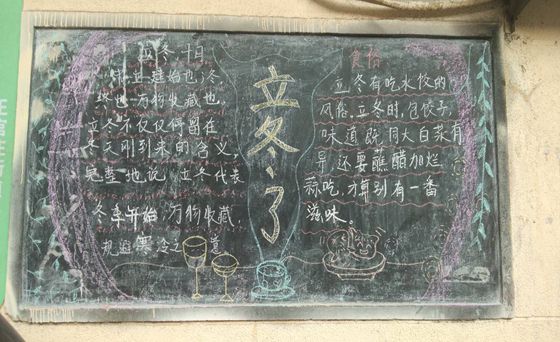 立冬,十月
节,立,建始也,冬,
终也,万物收藏也,
立冬不仅仅停留在
冬天刚到来的含义,
完整地说,立冬代表
冬季开始,万物收藏,
规避寒冷之意
立冬了
食俗
立冬有吃水饺的
风俗,立冬时,包饺子,
味道既同大白菜有
异,还要蘸醋加烂
蒜吃,才算别有一番
滋味。